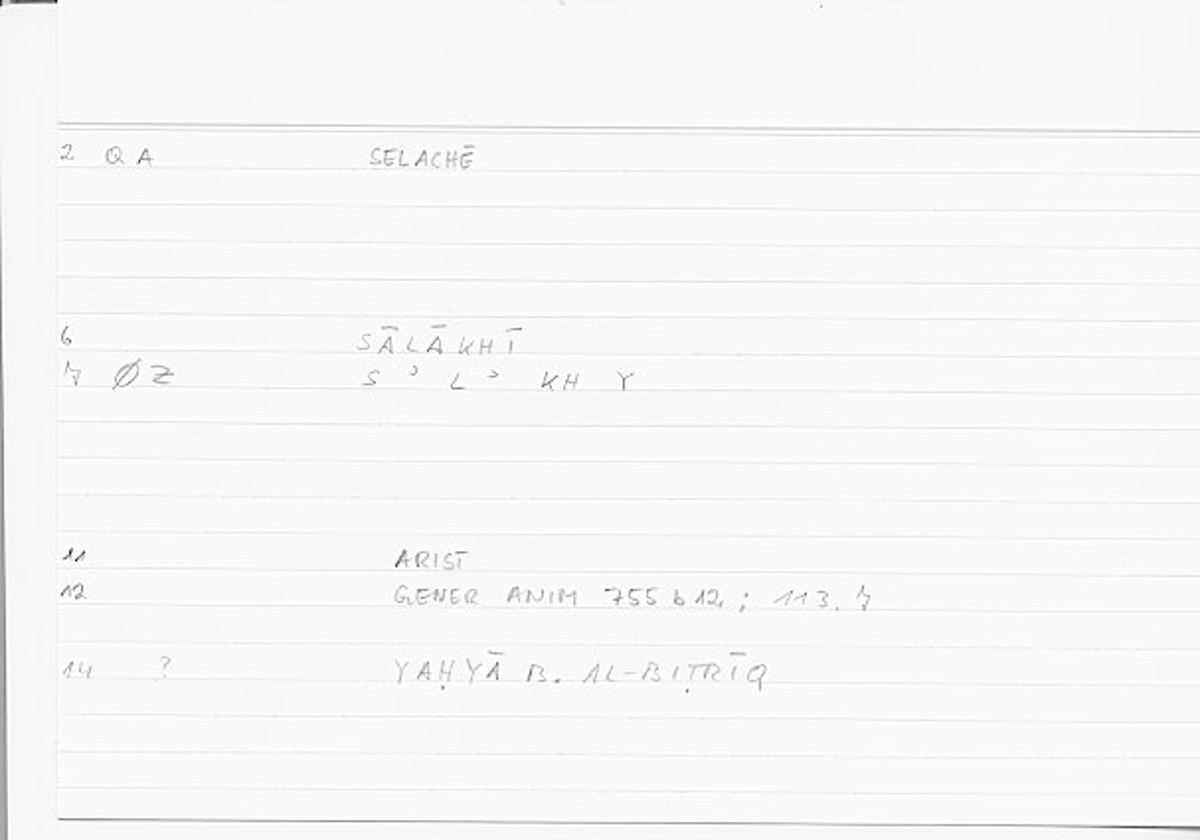 2 Q A SELACHĒ
6 SĀLĀKHĪ
7 Ø Z S ʾ L ʾ KH Y
11 ARIST
12 GENER ANIM 755 b 12 ; 113. 7
14 ? YAḤYĀ B. AL-BIṬRĪQ